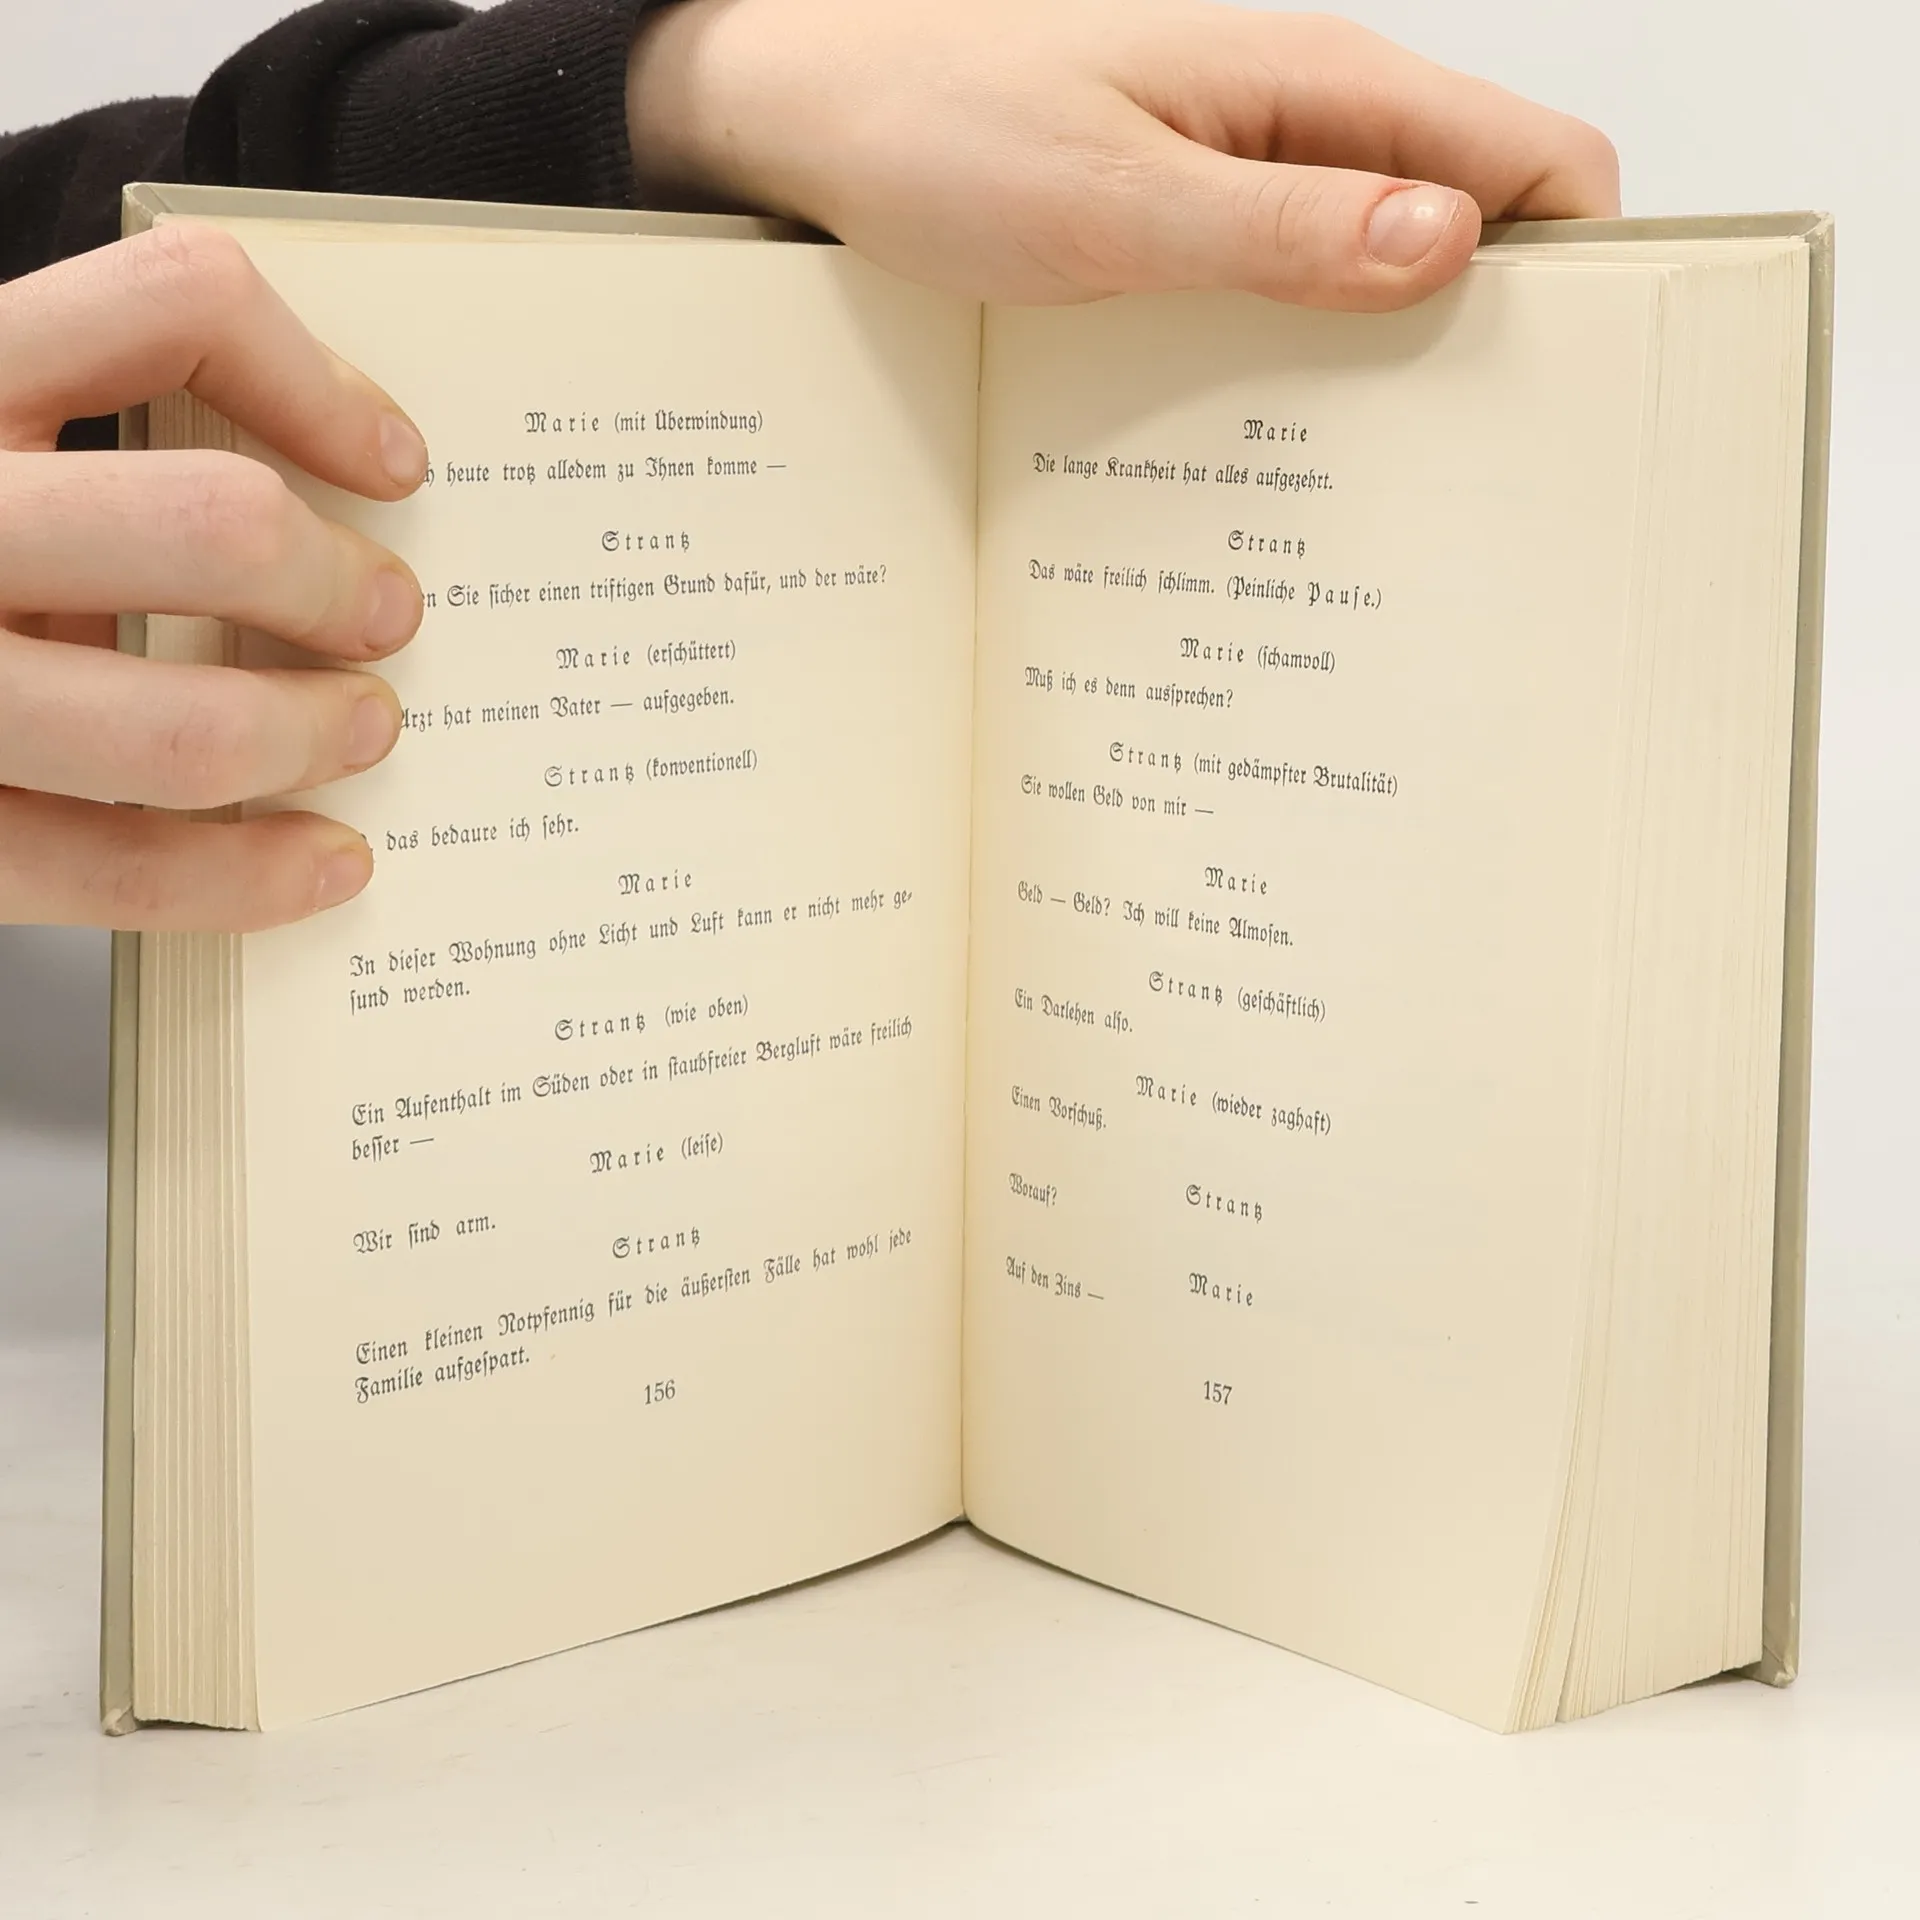 Marie (mit Überwindung)
heute trotz alledem zu Ihnen komme —
Strantz
Sie sicher einen triftigen Grund dafür, und der wäre?
Marie (erschüttert)
Arzt hat meinen Vater — aufgegeben.
Strantz (konventionell)
das bedaure ich sehr.
Marie
In dieser Wohnung ohne Licht und Luft kann er nicht mehr ge-
sund werden.
Strantz (wie oben)
Ein Aufenthalt im Süden oder in staubfreier Bergluft wäre freilich
besser —
Marie (leise)
Wir sind arm.
Strantz
Einen kleinen Notpfennig für die äußersten Fälle hat wohl jede
Familie aufgespart.
156
Marie
Die lange Krankheit hat alles aufgezehrt.
Strantz
Das wäre freilich schlimm. (Peinliche Pause.)
Marie (schamvoll)
Muß ich es denn aussprechen?
Strantz (mit gedämpfter Brutalität)
Sie wollen Geld von mir —
Marie
Geld — Geld? Ich will keine Almosen.
Strantz (geschäftlich)
Ein Darlehen also.
Marie (wieder zaghaft)
Einen Vorschuß.
Strantz
Worauf?
Marie
Auf den Zins —
157